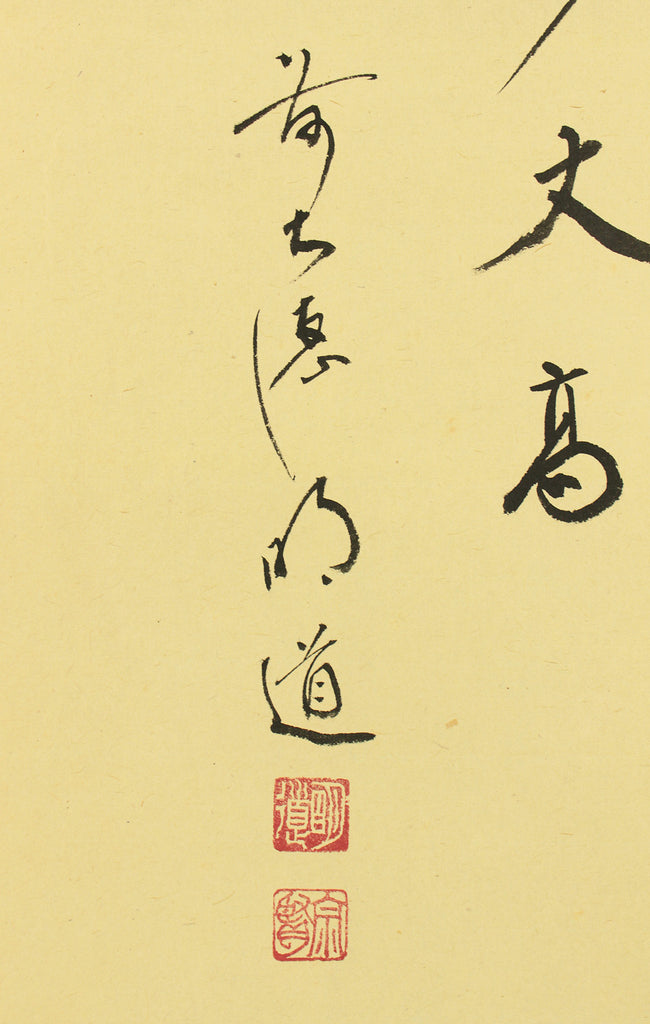 丈高
前大德明道
明道
宗賢